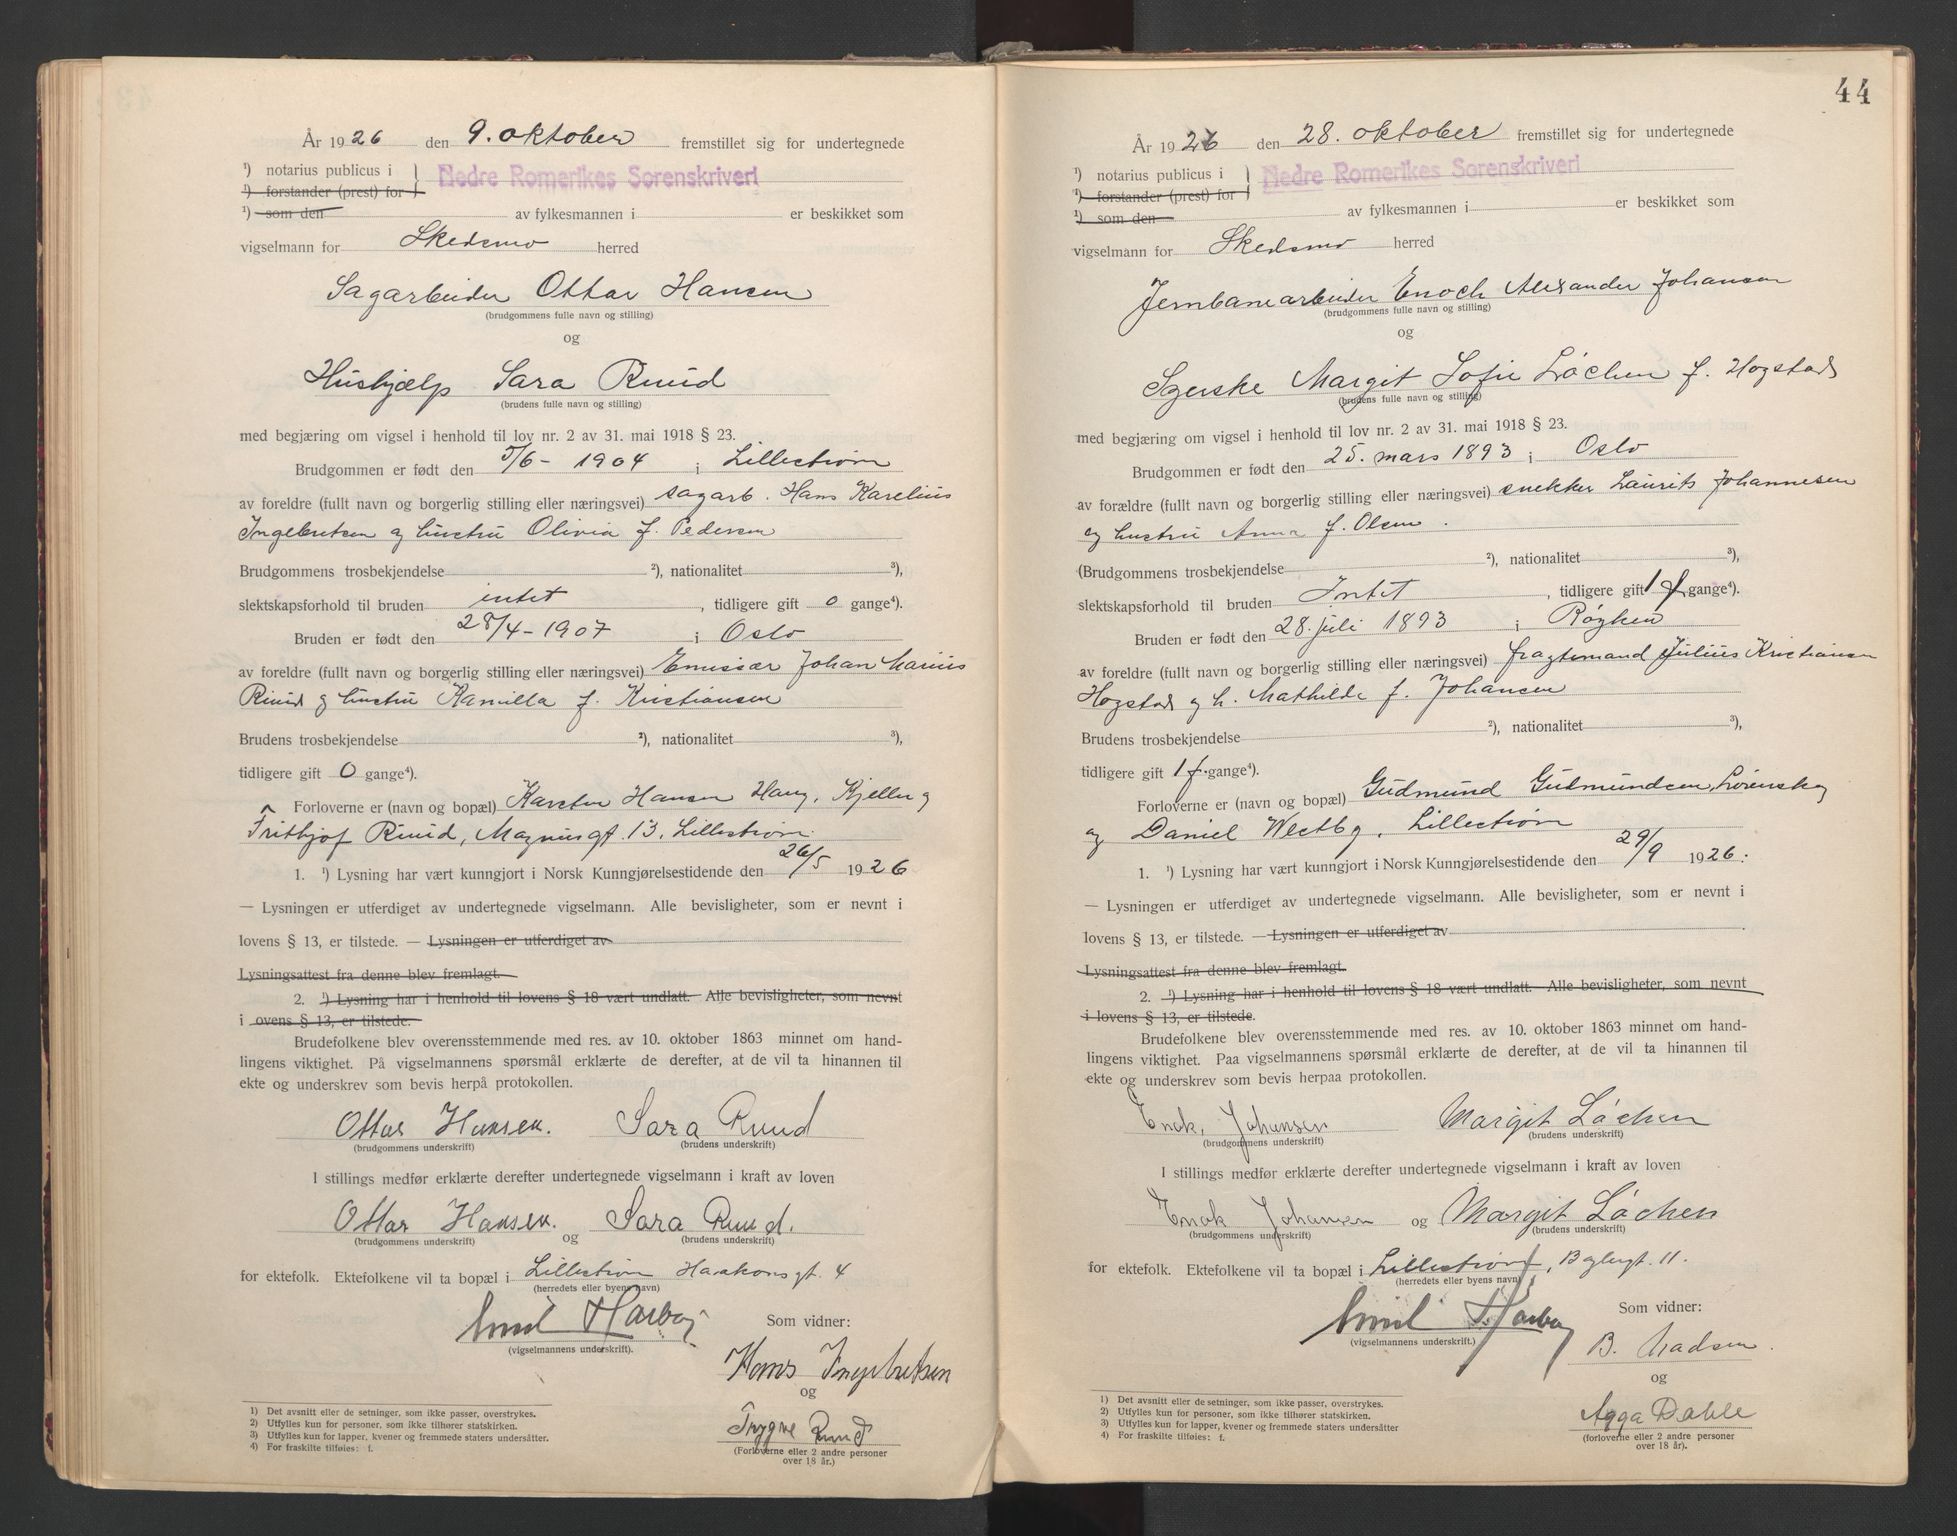 År 1926 den 9. oktober fremstillet sig for undertegnede
1) notarius publicus i } Nedre Romerikes Sorenskriveri
1) forstander (prest) for
1) som den av fylkesmannen i er beskikket som
vigselmann for Skedsmo herred
Sagarbeider Ottar Hansen
(brudgommens fulle navn og stilling)
og
Hushjælp Sara Ruud
(brudens fulle navn og stilling)
med begjæring om vigsel i henhold til lov nr. 2 av 31. mai 1918 § 23.
Brudgommen er født den 5/6 - 1904 i Lillestrøm
av foreldre (fullt navn og borgerlig stilling eller næringsvei) sagarb. Hans Karelius
Ingebretsen og hustru Olivia f. Pedersen
Brudgommens trosbekjendelse 2), nationalitet 3),
slektskapsforhold til bruden intet, tidligere gift 0 gange4).
Bruden er født den 28/4 - 1907 i Oslo
av foreldre (fullt navn og borgerlig stilling eller næringsvei) Emissær Johan Marius
Ruud og hustru Kamilla f. Kristiansen
Brudens trosbekjendelse 2), nationalitet 3),
tidligere gift 0 gange4).
Forloverne er (navn og bopæl) Karsten Hansen Haug, Kjeller og
Frithjof Ruud, Magnusgt. 13, Lillestrøm.
1. 1) Lysning har vært kunngjort i Norsk Kunngjørelsestidende den 26/5 1926
— Lysningen er utferdiget av undertegnede vigselmann. Alle bevisligheter, som er nevnt i
lovens § 13, er tilstede. — Lysningen er utferdiget av
Lysningsattest fra denne blev fremlagt.
2. 1) Lysning har i henhold til lovens § 18 vært undlatt. Alle bevisligheter, som nevnt
i ovens § 13, er tilstede.
Brudefolkene blev overensstemmende med res. av 10. oktober 1863 minnet om hand-
lingens viktighet. På vigselmannens spørsmål erklærte de derefter, at de vil ta hinannen til
ekte og underskrev som bevis herpå protokollen.
Ottar Hansen. Sara Ruud
(brudgommens underskrift) (brudens underskrift)
I stillings medfør erklærte derefter undertegnede vigselmann i kraft av loven
Ottar Hansen. og Sara Ruud.
(brudgommens underskrift) (brudens underskrift)
for ektefolk. Ektefolkene vil ta bopæl i Lillestrøm Haakonsgt. 4
(herredets eller byens navn)
Emil Harboy
(vigselmannens underskrift).
Som vidner:
Hans Ingebretsen
og
Trygve Ruud
(Forloverne eller 2 andre personer
over 18 år.)
1) Det avsnitt eller de setninger, som ikke passer, overstrykes.
2) Utfylles kun for personer, som ikke tilhører statskirken.
3) Utfylles kun for lapper, kvener og fremmede staters undersåtter.
4) For fraskilte tilføies: f.
44
År 1926 den 28. oktober fremstillet sig for undertegnede
1) notarius publicus i } Nedre Romerikes Sorenskriveri
1) forstander (prest) for
1) som den av fylkesmannen i er beskikket som
vigselmann for Skedsmo herred
Jernbanearbeider Enoch Alexander Johansen
(brudgommens fulle navn og stilling)
og
Syerske Margit Sofie Løchen f. Hogstad
(brudens fulle navn og stilling)
med begjæring om vigsel i henhold til lov nr. 2 av 31. mai 1918 § 23.
Brudgommen er født den 25. mars 1893 i Oslo
av forældre (fullt navn og borgerlig stilling eller næringsvei) snekker Laurits Johannesen
og hustru Anna f. Olsen.
(Brudgommens trosbekjendelse 2), nationalitet 3),
slektskapsforhold til bruden Intet, tidligere gift 1 f gange4).
Bruden er født den 28. juli 1893 i Røyken
av foreldre (fullt navn og borgerlig stilling eller næringsvei) fragtemand Julius Kristiansen
Hogstad og h. Mathilde f. Johansen
Brudens trosbekjendelse 2), nationalitet 3),
tidligere gift 1 f. gange4).
Forloverne er (navn og bopæl) Gudmund Gudmundsen, Lørenskog
og Daniel Westby, Lillestrøm
1. 1) Lysning har vært kunngjort i Norsk Kunngjørelsestidende den 29/9 1926.
— Lysningen er utferdiget av undertegnede vigselmann. Alle bevisligheter, som er nevnt i
lovens § 13, er tilstede. — Lysningen er utferdiget av
Lysningsattest fra denne blev fremlagt.
2. 1) Lysning har i henhold til lovens § 18 vært undlatt. Alle bevisligheter, som nevnt
i lovens § 13, er tilstede.
Brudefolkene blev overensstemmende med res. av 10. oktober 1863 minnet om hand-
lingens viktighet. Paa vigselmannens spørsmål erklærte de derefter, at de vil ta hinannen til
ekte og underskrev som bevis herpaa protokollen.
Enok, Johansen Margit Løchen
(brudgommens underskrift) (brudens underskrift)
I stillings medfør erklærte derefter undertegnede vigselmann i kraft av loven
Enok Johansen og Margit Løchen
(brudgommens underskrift) (brudens underskrift)
for ektefolk. Ektefolkene vil ta bopæl i Lillestrøm, Baglergt. 11.
(herredets eller byens navn)
Emil Harboy
(vigselmannens underskrift.)
Som vidner:
B. Madsen.
og
Agga Dahle
(forloverne eller 2 andre personer
over 18 år).
1) Det avsnitt eller de setninger, som ikke passer, overstrykes.
2) Utfylles kun for personer, som ikke tilhører statskirken.
3) Utfylles kun for lapper, kvener og fremmede staters undersåtter
4) For fraskilte tilføies: f.